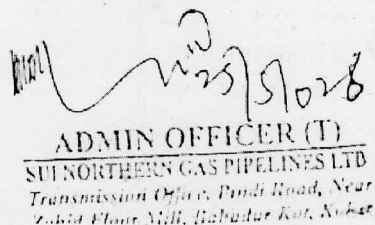 25/5/028
ADMIN OFFICER (T)
SUI NORTHERN GAS PIPELINES LTD
Transmission Office, Pindi Road, Near
Zahid Flour Mill, Bahadar Kot, Kohat